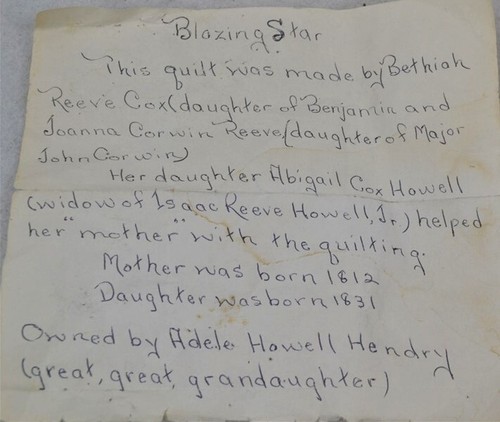 Blazing Star
This quilt was made by Bethiah
Reeve Cox (daughter of Benjamin and
Joanna Corwin Reeve (daughter of Major
John Corwin)
Her daughter Abigail Cox Howell
(widow of Isaac Reeve Howell, Jr.) helped
her "mother" with the quilting.
Mother was born 1812
Daughter was born 1831
Owned by Adele Howell Hendry
(great, great, grandaughter)